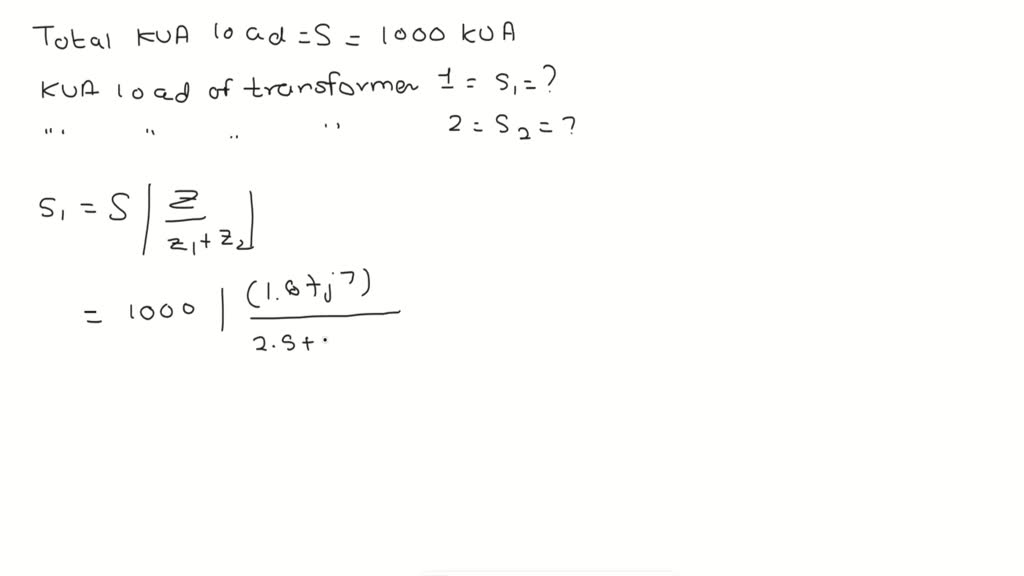 Total KVA load = S = 1000 KVA
KVA load of transformer 1 = S₁ = ?
"" " " " 2 = S₂ = ?
S₁ = S | Z / Z₁ + Z₂ |
= 1000 | (1.8 + j7) / 2.5 + .